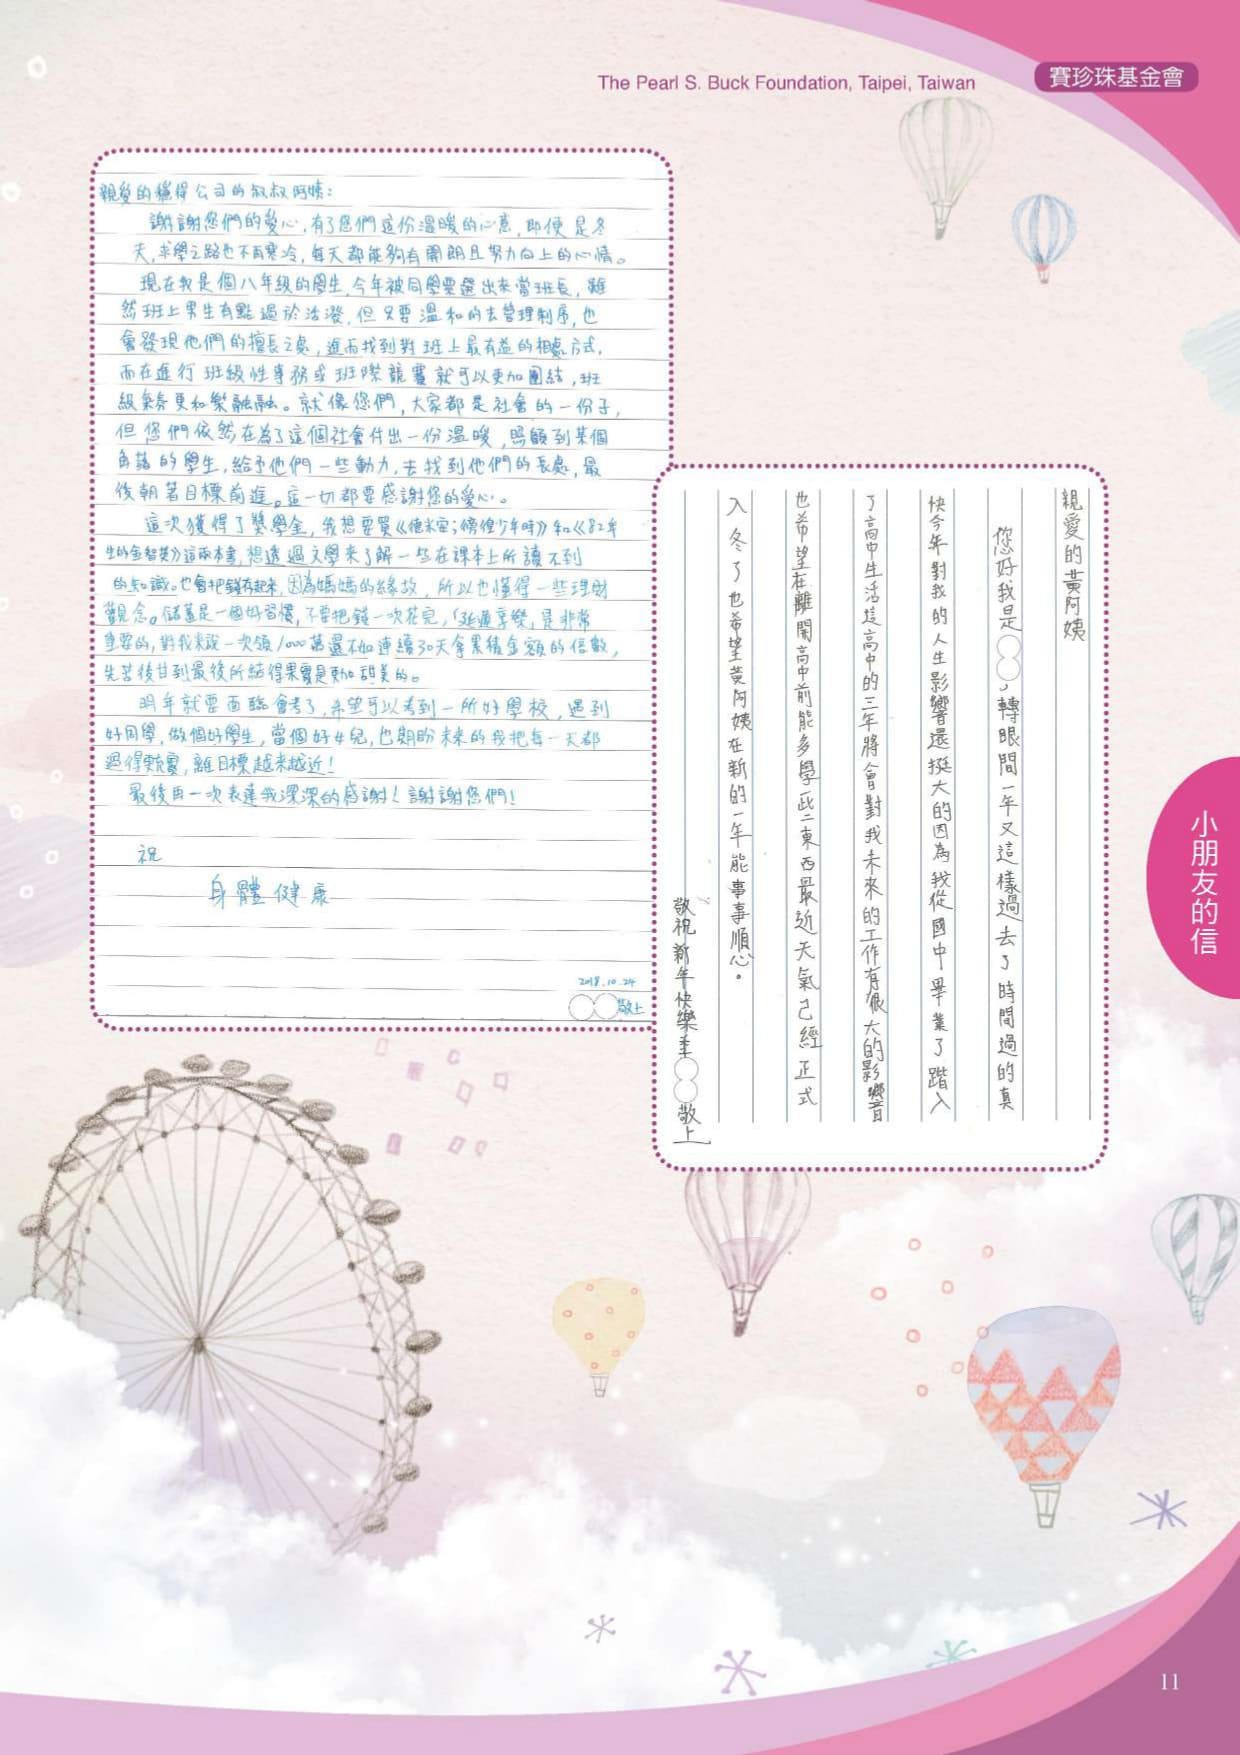 The Pearl S. Buck Foundation, Taipei, Taiwan
賽珍珠基金會
親愛的獲得公司的叔叔阿姨:
謝謝您們的愛心,有了您們這份溫暖的心意,即使是冬
天,求學之路也不再寒冷,每天都能夠有開朗且努力向上的心情。
現在我是個八年級的學生,今年被同學票選出來當班長,雖
然班上男生有點過於活潑,但又要溫和的去管理制序,也
會發現他們的擅長之處,進而找到對班上最有益的相處方式,
而在進行班級性事務或班際競賽就可以更加團結,班
級氣氛更和樂融融。就像您們,大家都是社會的一份子,
但您們依然在為了這個社會付出一份溫暖,照顧到某個
角落的學生,給予他們一些動力,去找到他們的長處,最
後朝著目標前進。這一切都要感謝您的愛心。
這次獲得了獎學金,我想要買《德米安:徬徨少年時》和《82年
生的金智英》這兩本書,想透過文學來了解一些在課本上所讀不到
的知識。也會把錢存起來,因為媽媽的緣故,所以也懂得一些理財
觀念。儲蓄是一個好習慣,不要把錢一次花完,「延遲享樂」是非常
重要的,對我來說一次領1000萬還不如連續30天拿累積金額的倍數,
先苦後甘到最後所結得果實是更加甜美的。
明年就要面臨會考了,希望可以考到一所好學校,遇到
好同學,做個好學生,當個好女兒,也期盼未來的我把每一天都
過得充實,離目標越來越近!
最後再一次表達我深深的感謝!謝謝您們!
祝
身體健康
2018.10.24
○○敬上
親愛的黃阿姨
您好我是○○,轉眼間一年又這樣過去了時間過的真
快今年對我的人生影響還挺大的因為我從國中畢業了踏入
了高中生活這高中的三年將會對我未來的工作有很大的影響
也希望在離開高中前能多學些東西最近天氣已經正式
入冬了也希望黃阿姨在新的一年能事事順心。
敬祝新年快樂 李○○敬上
小朋友的信
11